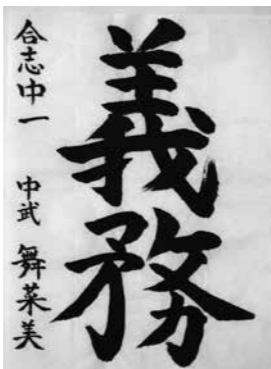 義務
合志中一 中武 舞菜美